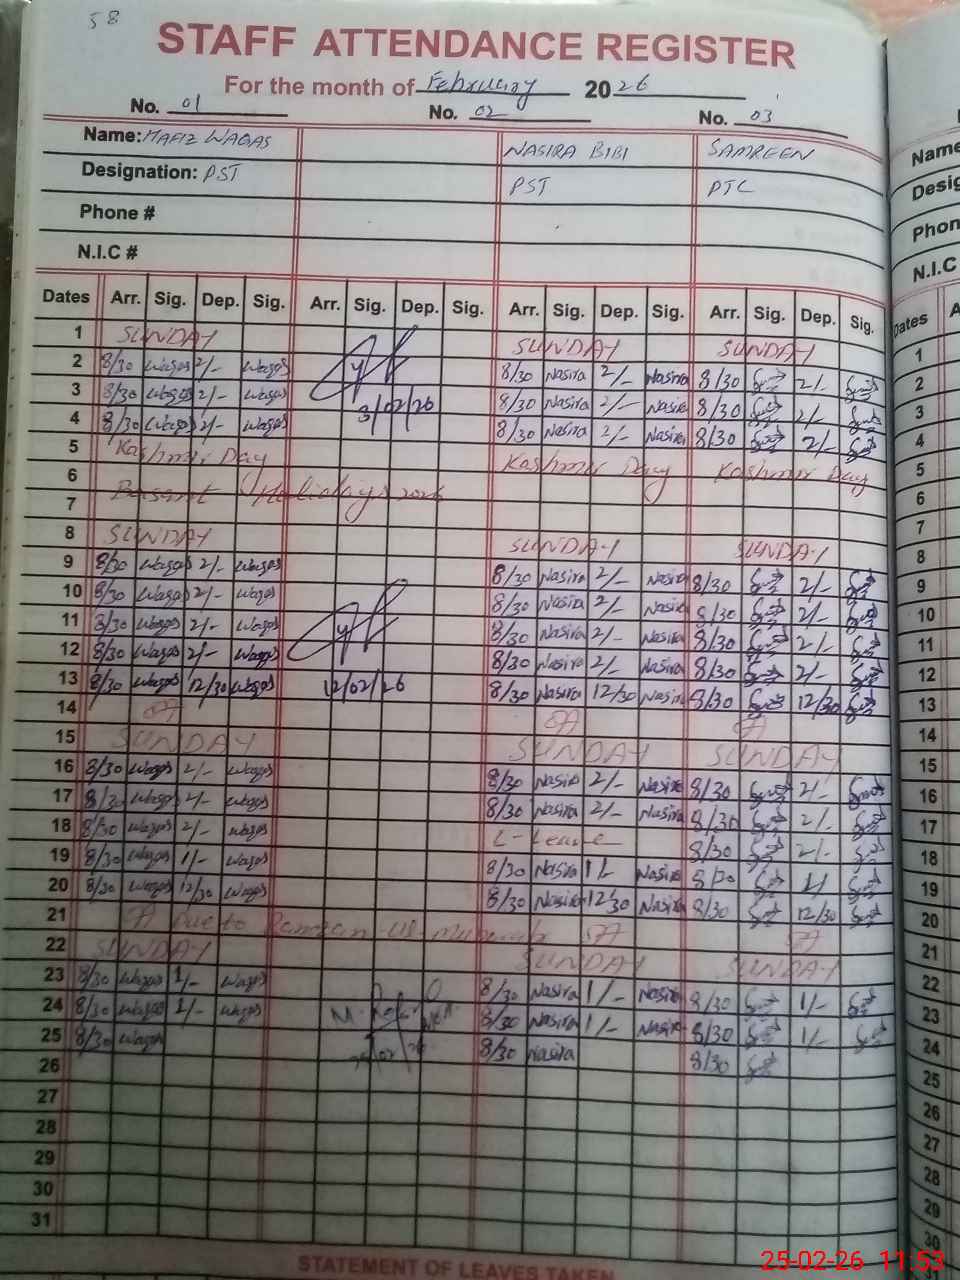 58
STAFF ATTENDANCE REGISTER
For the month of February 2026
No. 01 No. 02 No. 03
Name: HAFIZ WAQAS NASIRA BIBI SAMREEN
Designation: PST PST PTC
Phone #
N.I.C #
Dates Arr. Sig. Dep. Sig. Arr. Sig. Dep. Sig. Arr. Sig. Dep. Sig. Arr. Sig. Dep. Sig.
1 SUNDAY SUNDAY SUNDAY
2 8/30 Waqas 2/- Waqas 8/30 Nasira 2/- Nasira 8/30 2/-
3 8/30 Waqas 2/- Waqas 3/02/26 8/30 Nasira 2/- Nasira 8/30 2/-
4 8/30 Waqas 2/- Waqas 8/30 Nasira 2/- Nasira 8/30 2/-
5 Kashmir Day Kashmir Day Kashmir Day
6 Basant Holidays 2026
7
8 SUNDAY SUNDAY SUNDAY
9 8/30 Waqas 2/- Waqas 8/30 Nasira 2/- Nasira 8/30 2/-
10 8/30 Waqas 2/- Waqas 8/30 Nasira 2/- Nasira 8/30 2/-
11 8/30 Waqas 2/- Waqas 8/30 Nasira 2/- Nasira 8/30 2/-
12 8/30 Waqas 2/- Waqas 8/30 Nasira 2/- Nasira 8/30 2/-
13 8/30 Waqas 12/30 Waqas 12/02/26 8/30 Nasira 12/30 Nasira 8/30 12/30
14
15 SUNDAY SUNDAY SUNDAY
16 8/30 Waqas 2/- Waqas 8/30 Nasira 2/- Nasira 8/30 2/-
17 8/30 Waqas 2/- Waqas 8/30 Nasira 2/- Nasira 8/30 2/-
18 8/30 Waqas 2/- Waqas L-Leave 8/30 2/-
19 8/30 Waqas 1/- Waqas 8/30 Nasira 1/- Nasira 8/30 1/-
20 8/30 Waqas 12/30 Waqas 8/30 Nasira 12/30 Nasira 8/30 12/30
21 Due to Ramzan-ul-Mubarak
22 SUNDAY SUNDAY SUNDAY
23 8/30 Waqas 1/- Waqas 8/30 Nasira 1/- Nasira 8/30 1/-
24 8/30 Waqas 1/- Waqas 8/30 Nasira 1/- Nasira 8/30 1/-
25 8/30 Waqas 8/30 Nasira 8/30
26
27
28
29
30
31
STATEMENT OF LEAVES TAKEN
Name
Desig
Phon
N.I.C
Dates
1
2
3
4
5
6
7
8
9
10
11
12
13
14
15
16
17
18
19
20
21
22
23
24
25
26
27
28
29
30
25-02-26 11:53